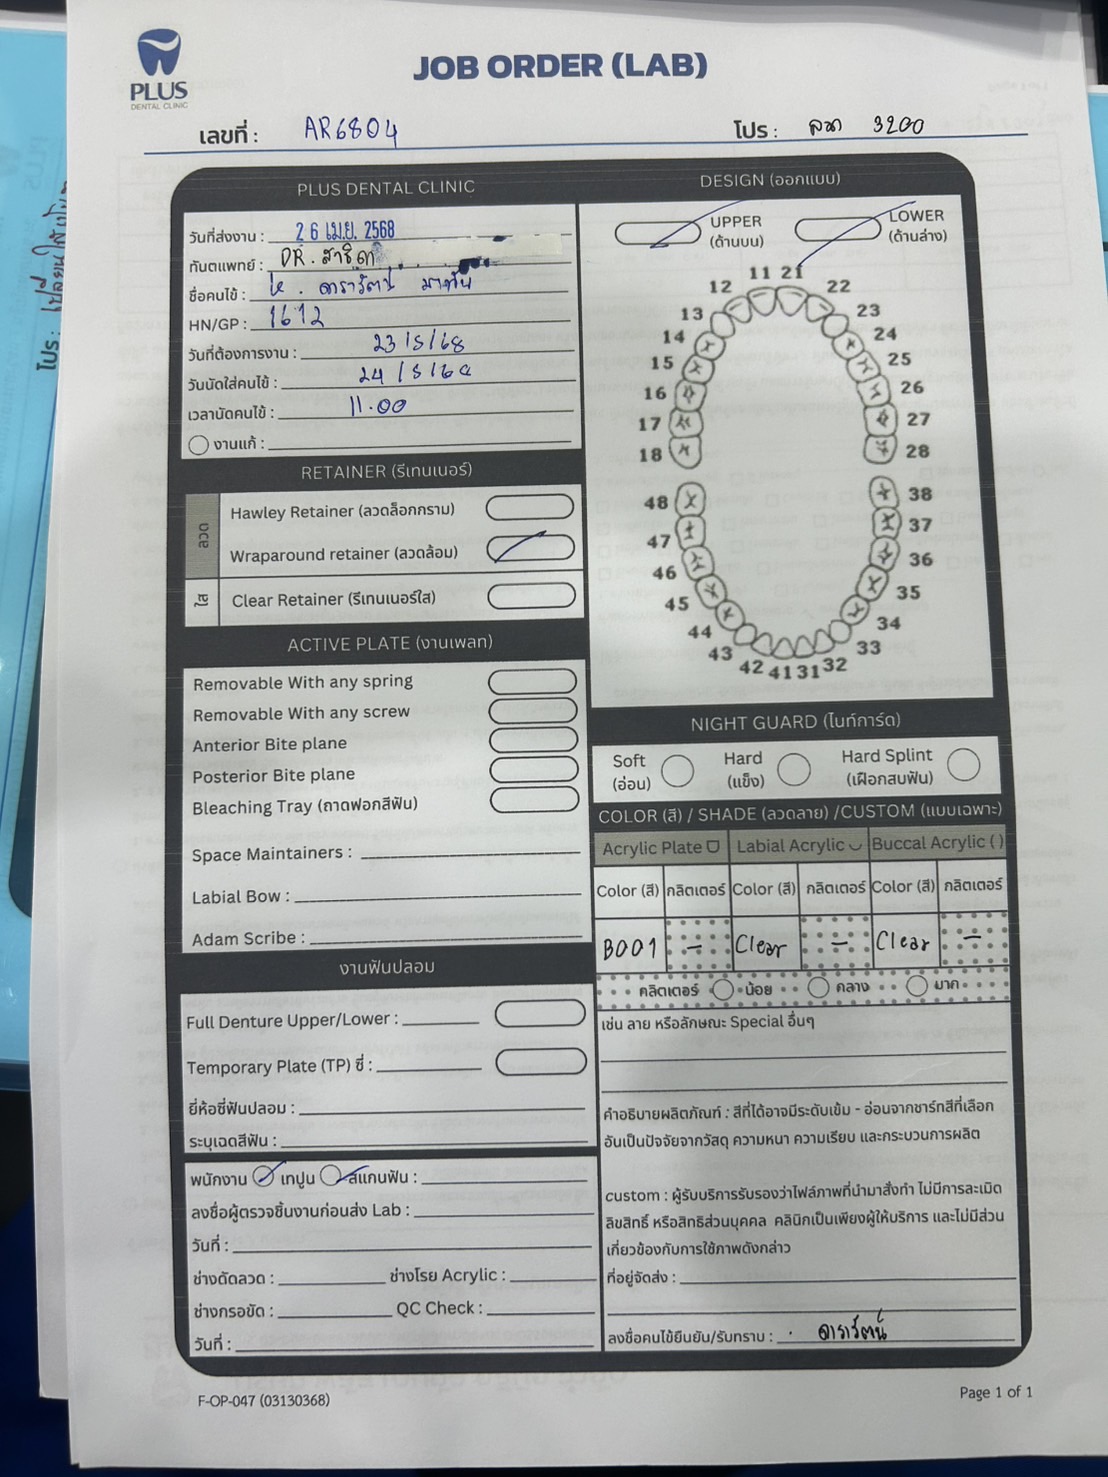 PLUS
DENTAL CLINIC
JOB ORDER (LAB)
เลขที่ : AR6804
โปร : ลวด 3200
PLUS DENTAL CLINIC
วันที่ส่งงาน : 26 เม.ย. 2568
ทันตแพทย์ : DR. สาธิตา
ชื่อคนไข้ : ดารารัตน์
HN/GP : 1612
วันที่ต้องการงาน : 23/5/68
วันนัดใส่คนไข้ : 24/5/68
เวลานัดคนไข้ : 11.00
งานแก้ :
RETAINER (รีเทนเนอร์)
ลวด
Hawley Retainer (ลวดล็อกกราม)
Wraparound retainer (ลวดล้อม)
ใส
Clear Retainer (รีเทนเนอร์ใส)
ACTIVE PLATE (งานเพลท)
Removable With any spring
Removable With any screw
Anterior Bite plane
Posterior Bite plane
Bleaching Tray (ถาดฟอกสีฟัน)
Space Maintainers :
Labial Bow :
Adam Scribe :
งานฟันปลอม
Full Denture Upper/Lower :
Temporary Plate (TP) ซี่ :
ยี่ห้อซี่ฟันปลอม :
ระบุเฉดสีฟัน :
พนักงาน เทปูน สแกนฟัน :
ลงชื่อผู้ตรวจชิ้นงานก่อนส่ง Lab :
วันที่ :
ช่างดัดลวด : ช่างโรย Acrylic :
ช่างกรอขัด : QC Check :
วันที่ :
DESIGN (ออกแบบ)
UPPER (ด้านบน)
LOWER (ด้านล่าง)
11 21
12 22
13 23
14 24
15 25
16 26
17 27
18 28
48 38
47 37
46 36
45 35
44 34
43 33
42 41 31 32
NIGHT GUARD (ไนท์การ์ด)
Soft (อ่อน)
Hard (แข็ง)
Hard Splint (เฝือกสบฟัน)
COLOR (สี) / SHADE (ลวดลาย) /CUSTOM (แบบเฉพาะ)
Acrylic Plate Labial Acrylic Buccal Acrylic ( )
Color (สี) กลิตเตอร์ Color (สี) กลิตเตอร์ Color (สี) กลิตเตอร์
B001 - Clear - Clear -
คลิตเตอร์ น้อย กลาง มาก
เช่น ลาย หรือลักษณะ Special อื่นๆ
คำอธิบายผลิตภัณฑ์ : สีที่ได้อาจมีระดับเข้ม - อ่อนจากชาร์ทสีที่เลือก
อันเป็นปัจจัยจากวัสดุ ความหนา ความเรียบ และกระบวนการผลิต
custom : ผู้รับบริการรับรองว่าไฟล์ภาพที่นำมาสั่งทำ ไม่มีการละเมิด
ลิขสิทธิ์ หรือสิทธิส่วนบุคคล คลินิกเป็นเพียงผู้ให้บริการ และไม่มีส่วน
เกี่ยวข้องกับการใช้ภาพดังกล่าว
ที่อยู่จัดส่ง :
ลงชื่อคนไข้ยืนยัน/รับทราบ : ดารารัตน์
F-OP-047 (03130368)
Page 1 of 1
โปร :